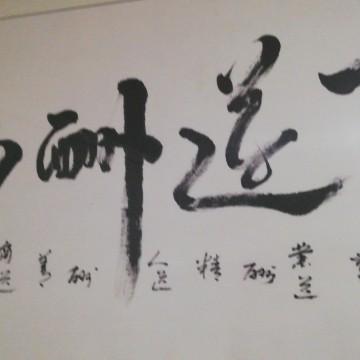 道酬
業道酬精人道酬善商道